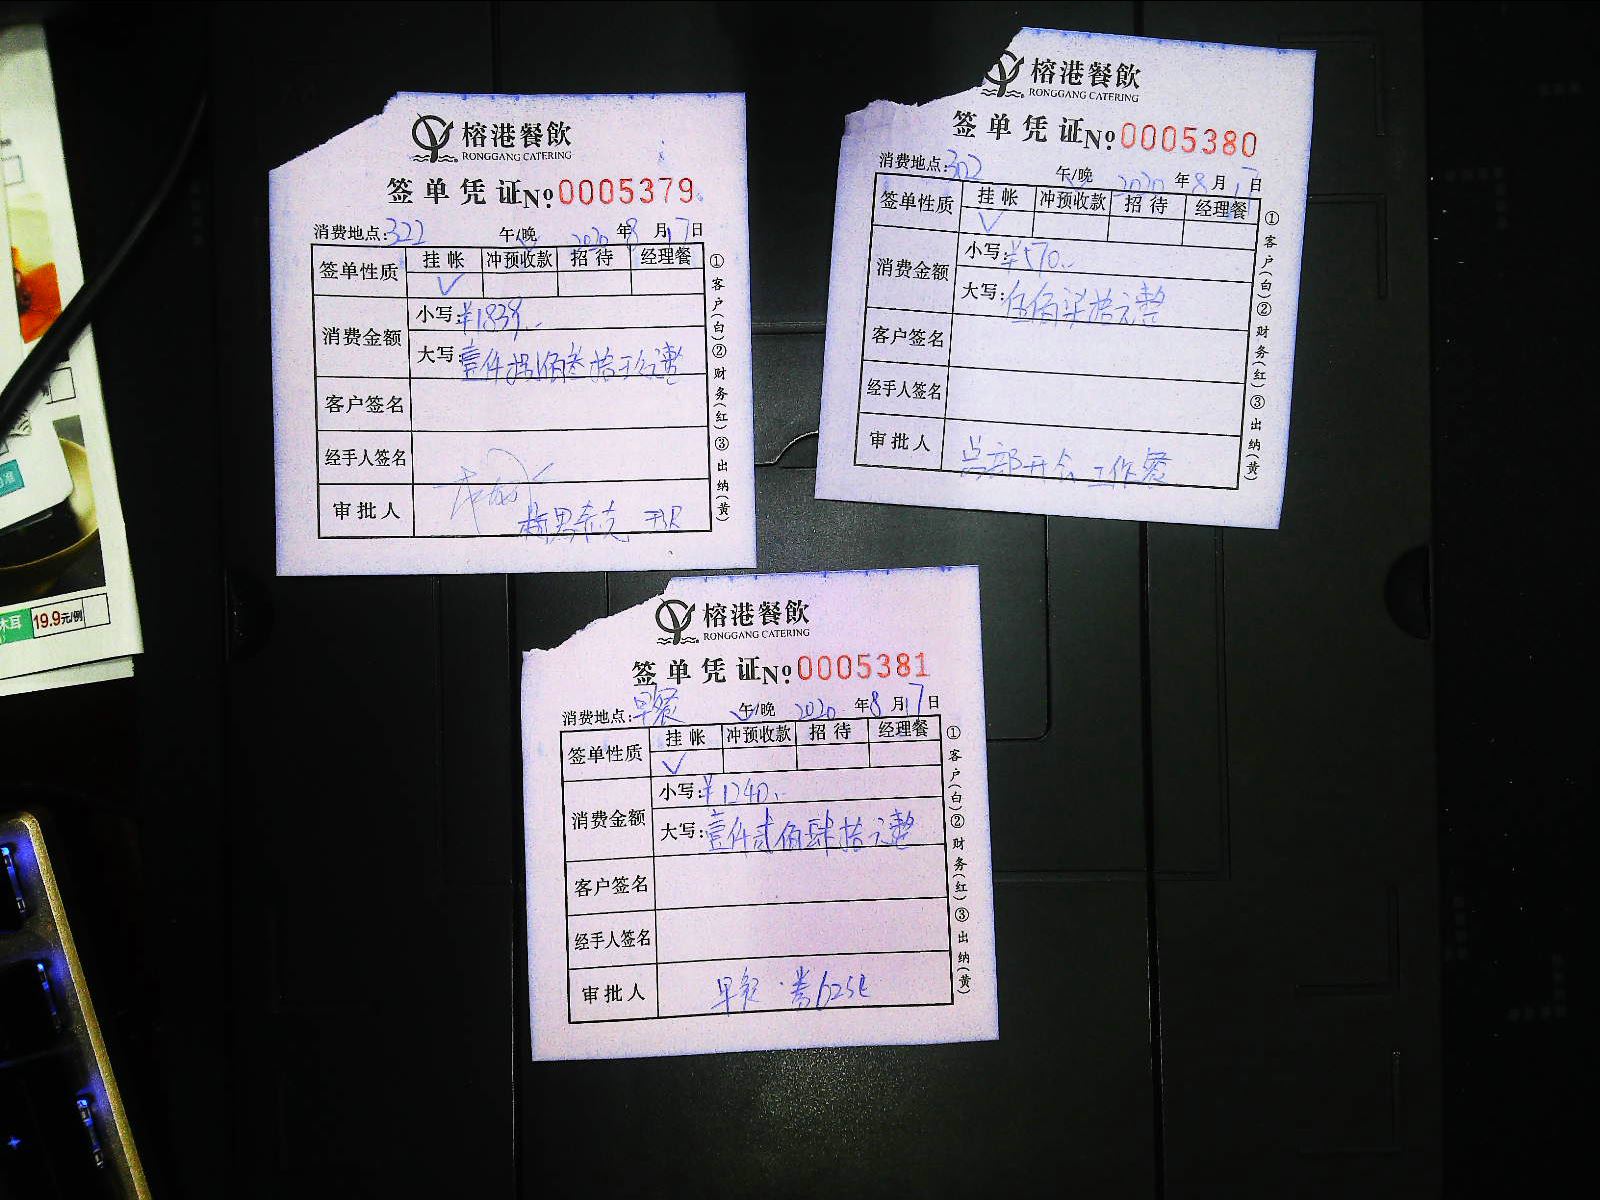 榕港餐飲
RONGGANG CATERING
签单凭证№0005379
消费地点:322 午/晚 2020年8月17日
签单性质 挂帐 冲预收款 招待 经理餐
✓
消费金额
小写:¥1839.-
大写:壹仟捌佰叁拾玖元整
客户签名
经手人签名
审批人
①客户(白)②财务(红)③出纳(黄)
榕港餐飲
RONGGANG CATERING
签单凭证№0005380
消费地点:302 午/晚 2020年8月17日
签单性质 挂帐 冲预收款 招待 经理餐
✓
消费金额
小写:¥570.-
大写:伍佰柒拾元整
客户签名
经手人签名
审批人 总部开会工作餐
①客户(白)②财务(红)③出纳(黄)
榕港餐飲
RONGGANG CATERING
签单凭证№0005381
消费地点:早餐 午/晚 2020年8月17日
签单性质 挂帐 冲预收款 招待 经理餐
✓
消费金额
小写:¥1240.-
大写:壹仟贰佰肆拾元整
客户签名
经手人签名
审批人 早餐
①客户(白)②财务(红)③出纳(黄)
木耳 19.9元/例